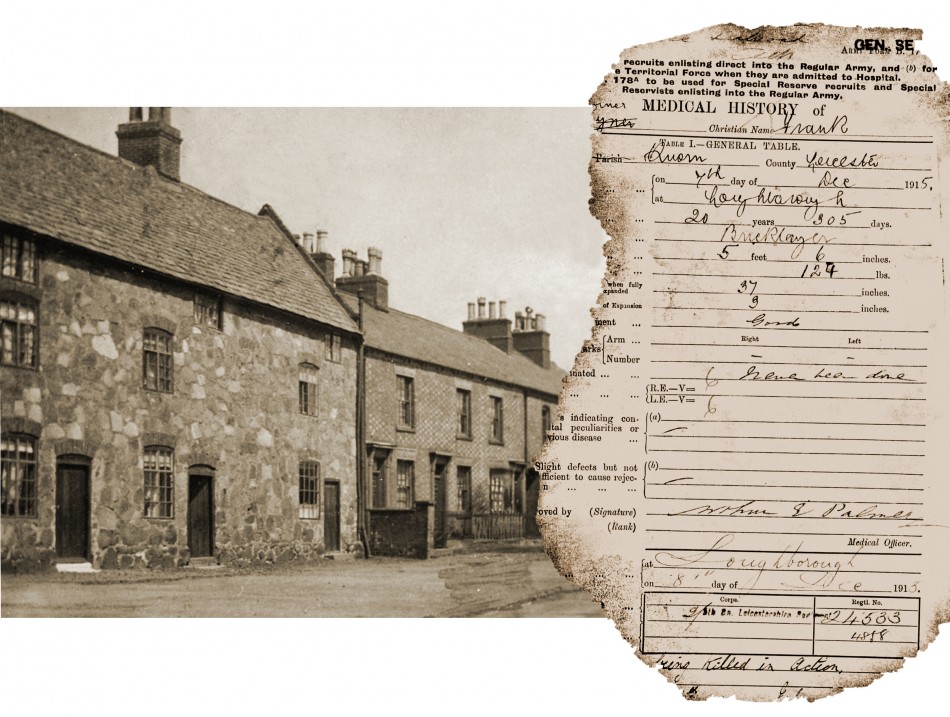 GEN. SE
Army Form B. 1
recruits enlisting direct into the Regular Army, and (b) for
e Territorial Force when they are admitted to Hospital.
178A to be used for Special Reserve recruits and Special
Reservists enlisting into the Regular Army.
MEDICAL HISTORY of
Christian Name Frank
TABLE I.—GENERAL TABLE.
Parish Quorn County Leicester
on 7th day of Dec 1915.
at Loughborough
20 years 305 days.
Bricklayer
5 feet 6 inches.
124 lbs.
when fully
expanded 37 inches.
of Expansion 3 inches.
ment ... Good
Right Left
arks Arm ...
Number — —
inated ... ... Never been done
R.E.—V= 6
L.E.—V= 6
s indicating con- (a)
ital peculiarities or
vious disease ...
Slight defects but not (b)
fficient to cause rejec-
n ... ... ...
oved by (Signature) Palmer
(Rank)
Medical Officer.
at Loughborough
on 8th day of Dec 1915.
Corps. Regtl. No.
Bn. Leicestershire 24533
4858
being Killed in Action,